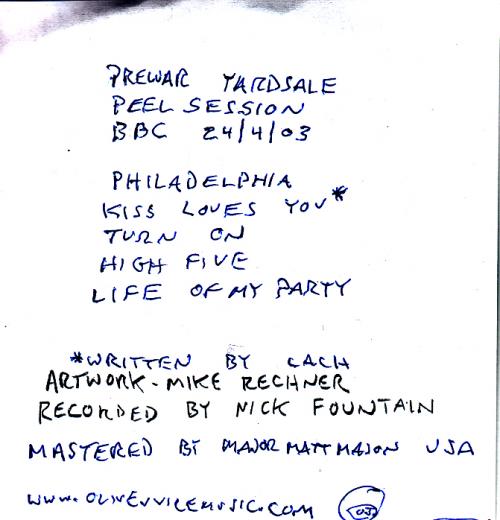 PREWAR YARDSALE
PEEL SESSION
BBC 24/4/03
PHILADELPHIA
KISS LOVES YOU*
TURN ON
HIGH FIVE
LIFE OF MY PARTY
*WRITTEN BY LACH
ARTWORK - MIKE RECHNER
RECORDED BY NICK FOUNTAIN
MASTERED BY MAJOR MATT MASON USA
WWW.OLIVEJUICEMUSIC.COM OJ